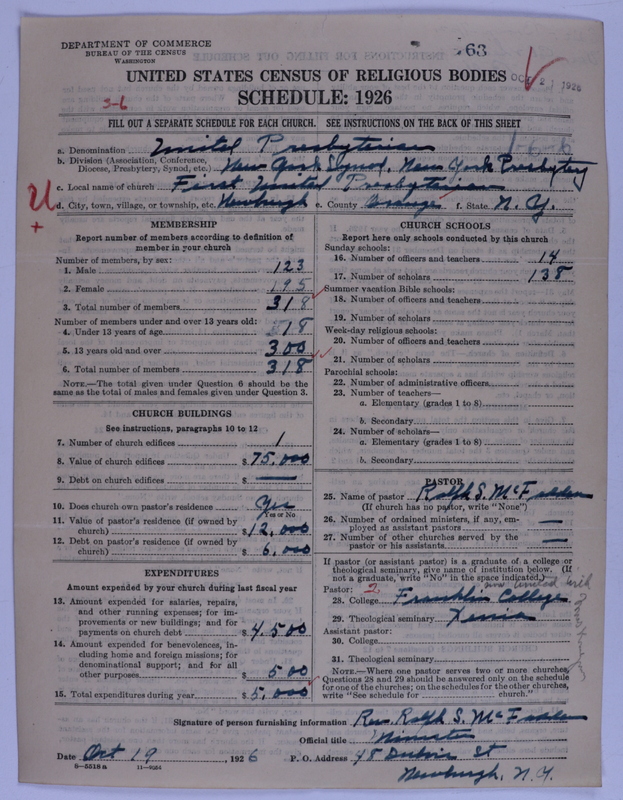 DEPARTMENT OF COMMERCE
BUREAU OF THE CENSUS
WASHINGTON
63
UNITED STATES CENSUS OF RELIGIOUS BODIES
OCT 21 1926
SCHEDULE: 1926
S-6
FILL OUT A SEPARATE SCHEDULE FOR EACH CHURCH. SEE INSTRUCTIONS ON THE BACK OF THIS SHEET
1-6-6
a. Denomination United Presbyterian
b. Division (Association, Conference, Diocese, Presbytery, Synod, etc.) New York Synod, New York Presbytery
c. Local name of church First United Presbyterian
d. City, town, village, or township, etc. Newburgh e. County Orange f. State N. Y.
U
+
MEMBERSHIP
Report number of members according to definition of
member in your church
Number of members, by sex:
1. Male 123
2. Female 195
3. Total number of members 318
Number of members under and over 13 years old:
4. Under 13 years of age 18
5. 13 years old and over 300
6. Total number of members 318
NOTE.—The total given under Question 6 should be the
same as the total of males and females given under Question 3.
CHURCH BUILDINGS
See instructions, paragraphs 10 to 12
7. Number of church edifices 1
8. Value of church edifices $ 75,000
9. Debt on church edifices $ —
10. Does church own pastor's residence? Yes
Yes or No
11. Value of pastor's residence (if owned by
church) $ 12,000
12. Debt on pastor's residence (if owned by
church) $ 6,000
EXPENDITURES
Amount expended by your church during last fiscal year
13. Amount expended for salaries, repairs,
and other running expenses; for im-
provements or new buildings; and for
payments on church debt $ 4,500
14. Amount expended for benevolences, in-
cluding home and foreign missions; for
denominational support; and for all
other purposes $ 500
15. Total expenditures during year $ 5,000
CHURCH SCHOOLS
Report here only schools conducted by this church
Sunday schools:
16. Number of officers and teachers 14
17. Number of scholars 138
Summer vacation Bible schools:
18. Number of officers and teachers
19. Number of scholars
Week-day religious schools:
20. Number of officers and teachers
21. Number of scholars
Parochial schools:
22. Number of administrative officers
23. Number of teachers—
a. Elementary (grades 1 to 8)
b. Secondary
24. Number of scholars—
a. Elementary (grades 1 to 8)
b. Secondary
PASTOR
25. Name of pastor Ralph S. McFadden
(If church has no pastor, write "None")
26. Number of ordained ministers, if any, em-
ployed as assistant pastors —
27. Number of other churches served by the
pastor or his assistants —
If pastor (or assistant pastor) is a graduate of a college or
theological seminary, give name of institution below. (If
not a graduate, write "No" in the space indicated.)
now united with
Pastor: 2
28. College Franklin College
29. Theological seminary Xenia
Assistant pastor:
30. College
31. Theological seminary
NOTE.—Where one pastor serves two or more churches,
Questions 28 and 29 should be answered only on the schedule
for one of the churches; on the schedules for the other churches,
write "See schedule for church."
Signature of person furnishing information Rev. Ralph S. McFadden
Official title Minister
Date Oct 19, 1926 P. O. Address 48 Dubois St
8—5518 a 11—9954
Newburgh, N.Y.